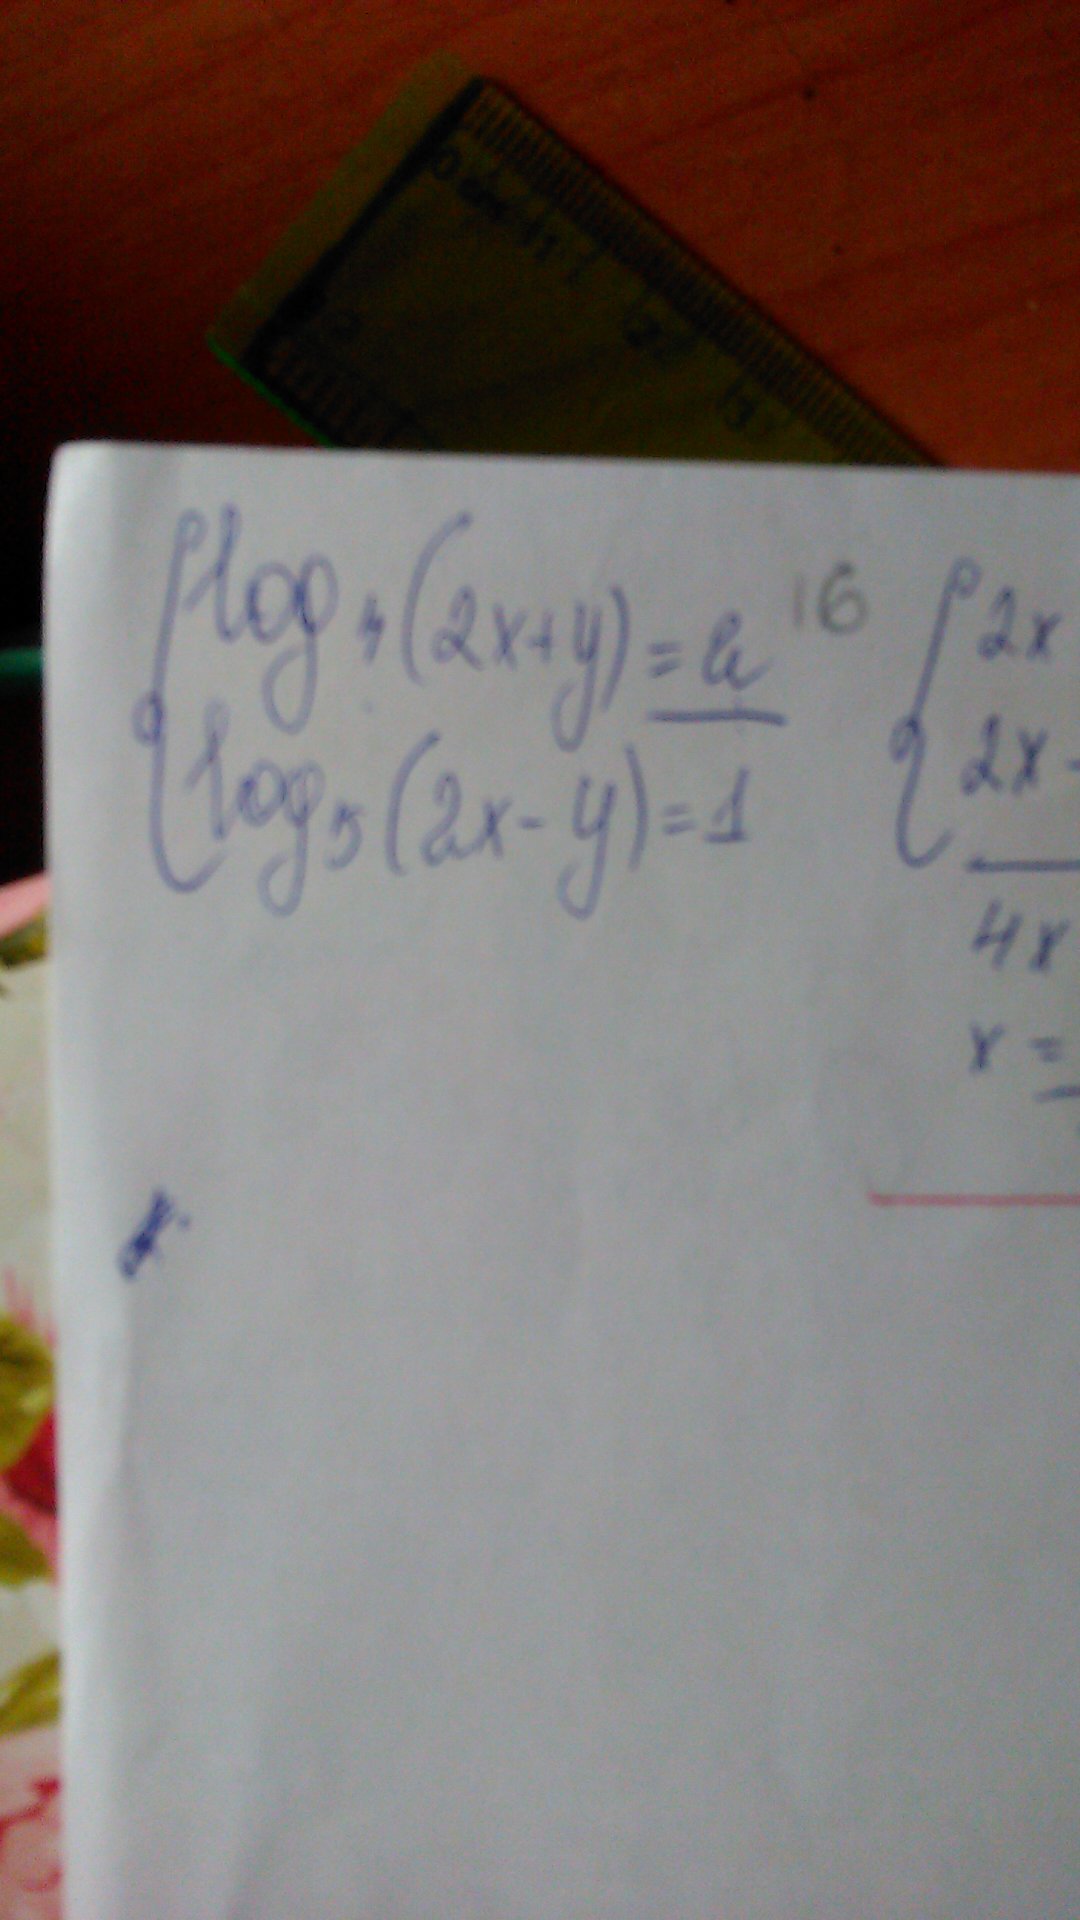 log₄(2x+y) = 2 16
log₅(2x-y) = 1
2x
2x -
4x
x =
1
2
3